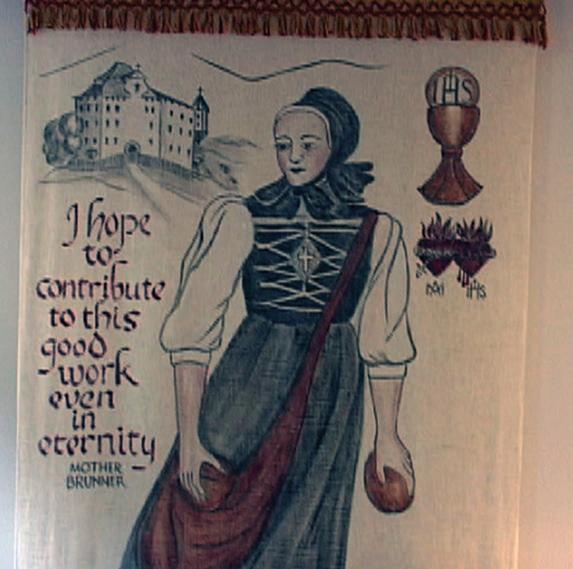 I hope
to
contribute
to this
good
-work
even
in
eternity -
MOTHER
BRUNNER
IHS
IHS